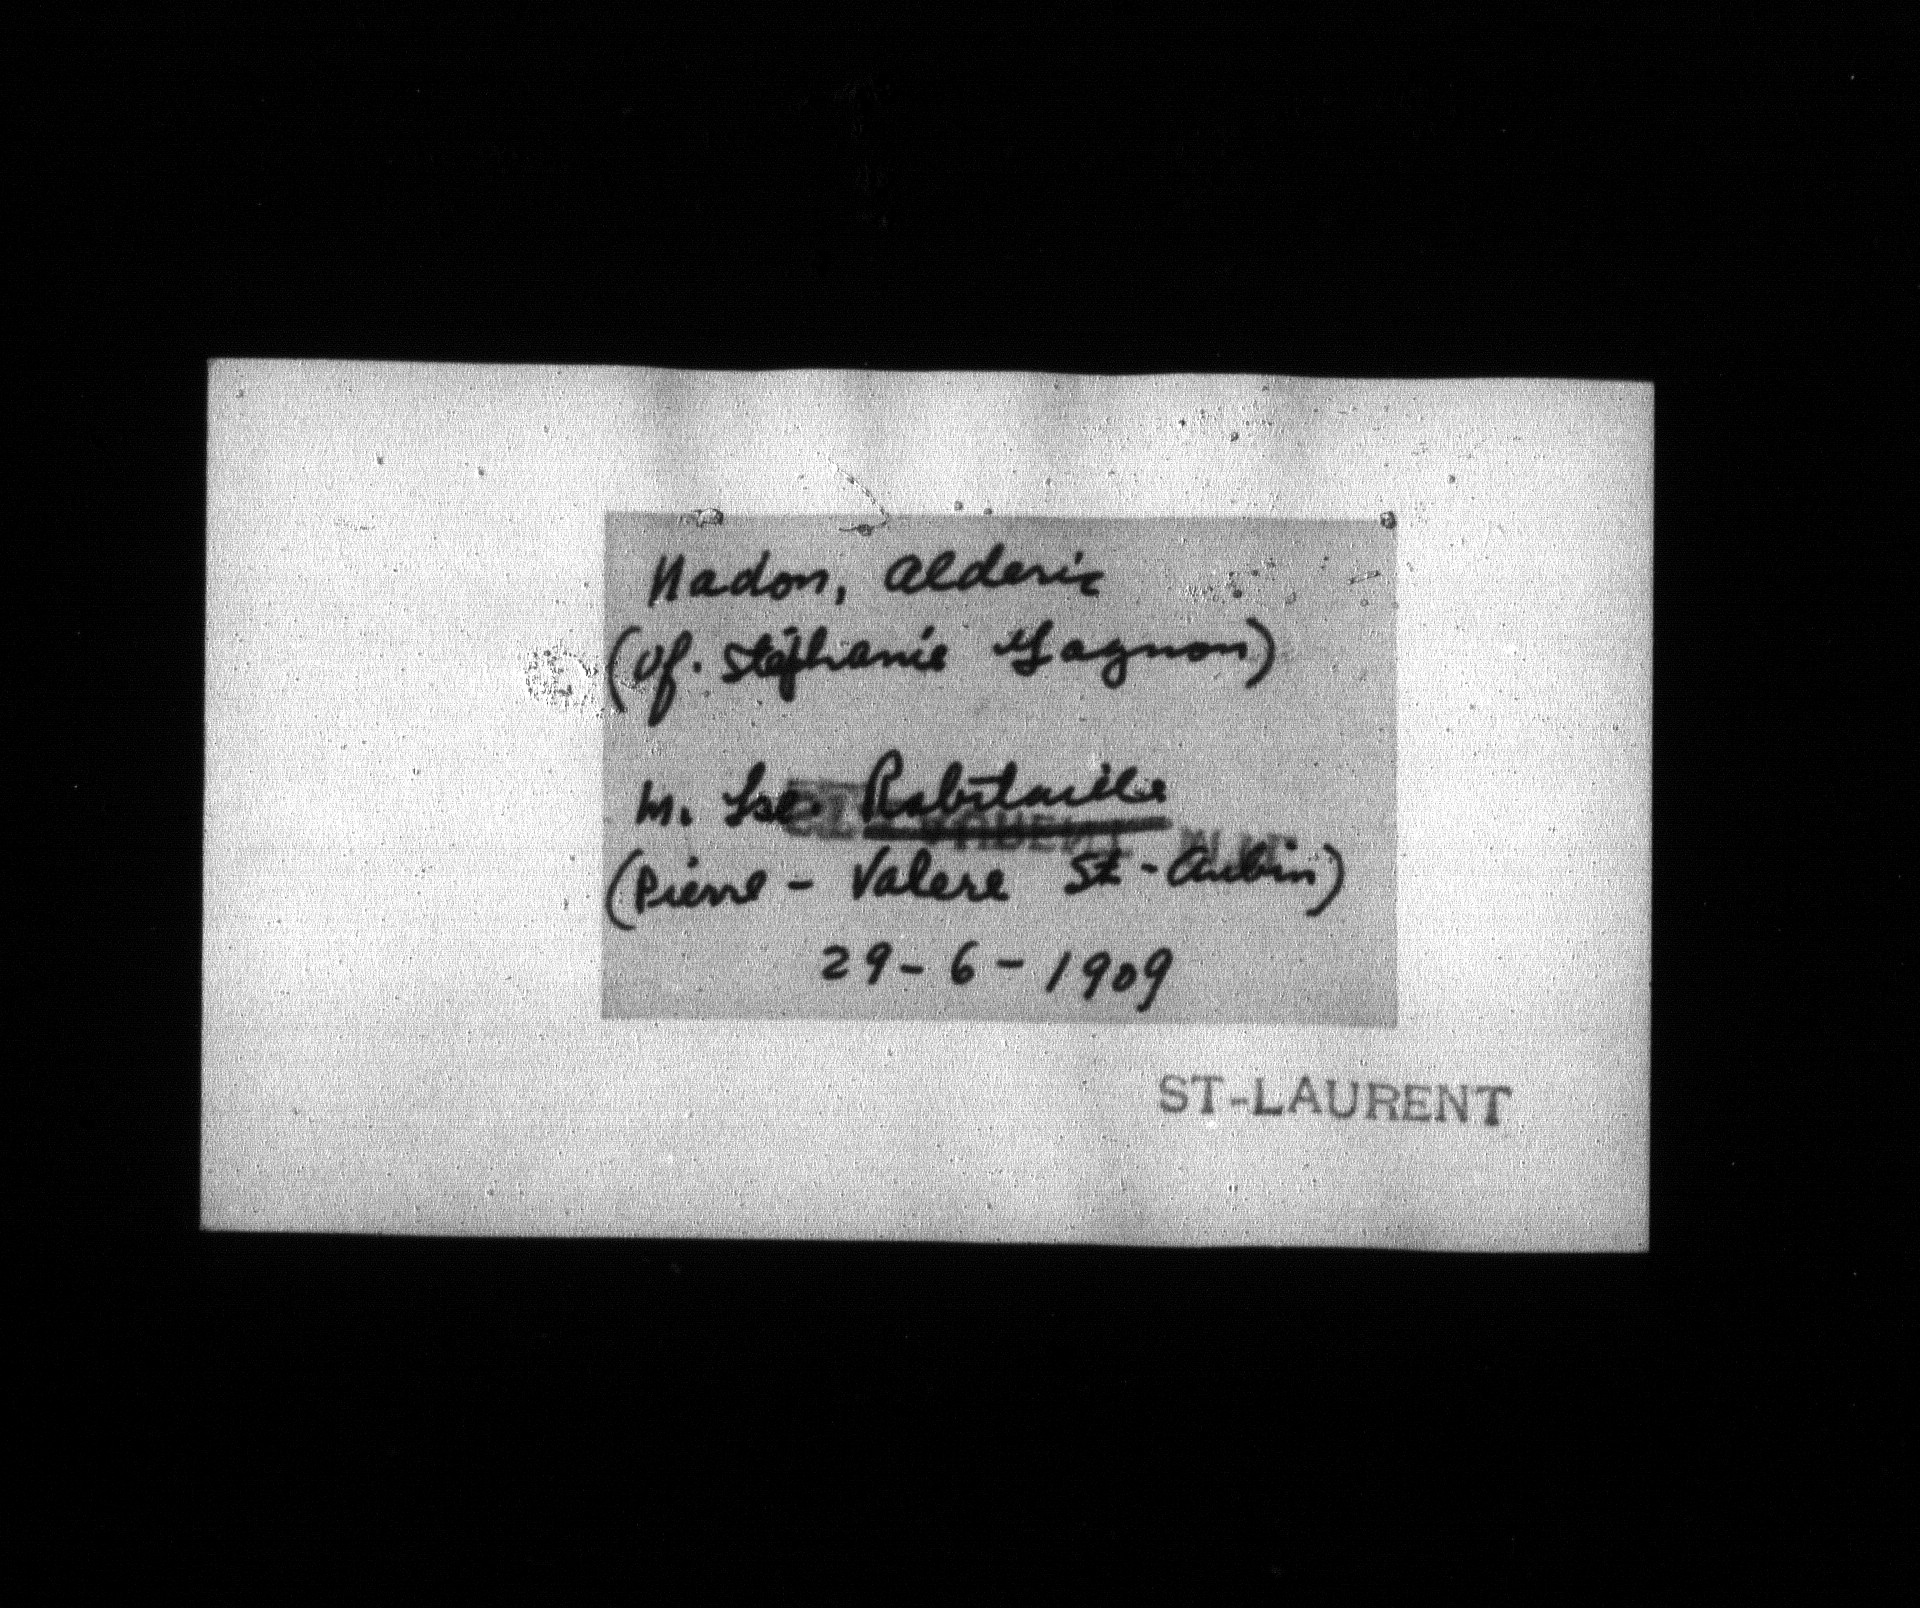 Nadon, Alderic
(Vf. Stéphanie Gagnon)
M. Lse Robitaille
(Pierre - Valere St-Aubin)
29-6-1909
ST-LAURENT